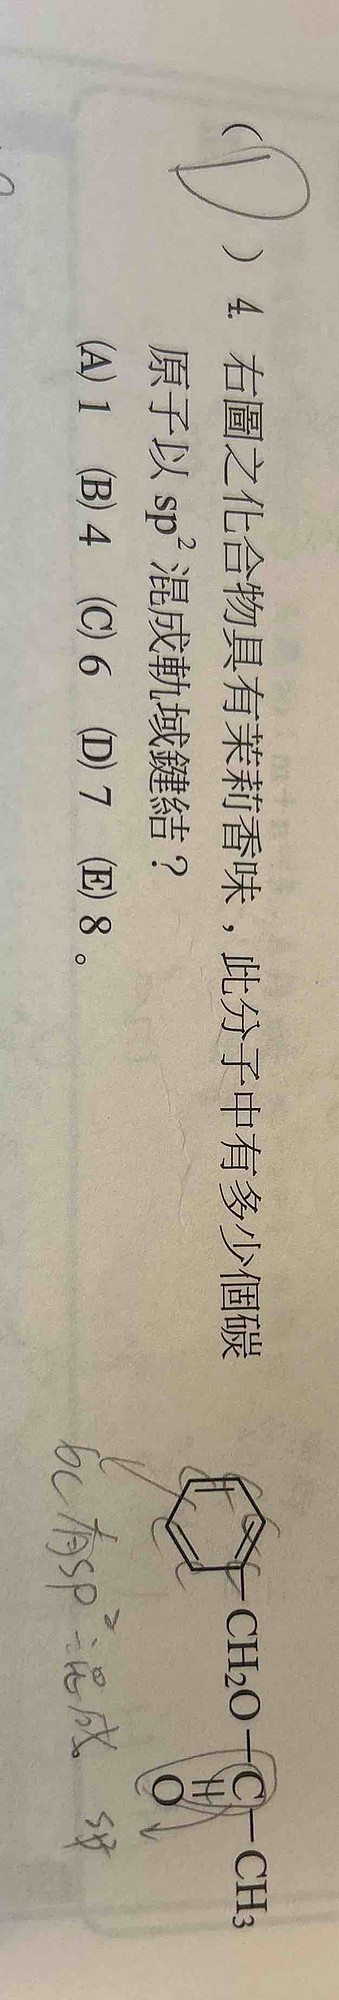 ( D ) 4. 右圖之化合物具有茉莉香味，此分子中有多少個碳
原子以 sp² 混成軌域鍵結？
(A) 1 (B) 4 (C) 6 (D) 7 (E) 8。
CH₂O—C—CH₃
O
6C有sp²混成